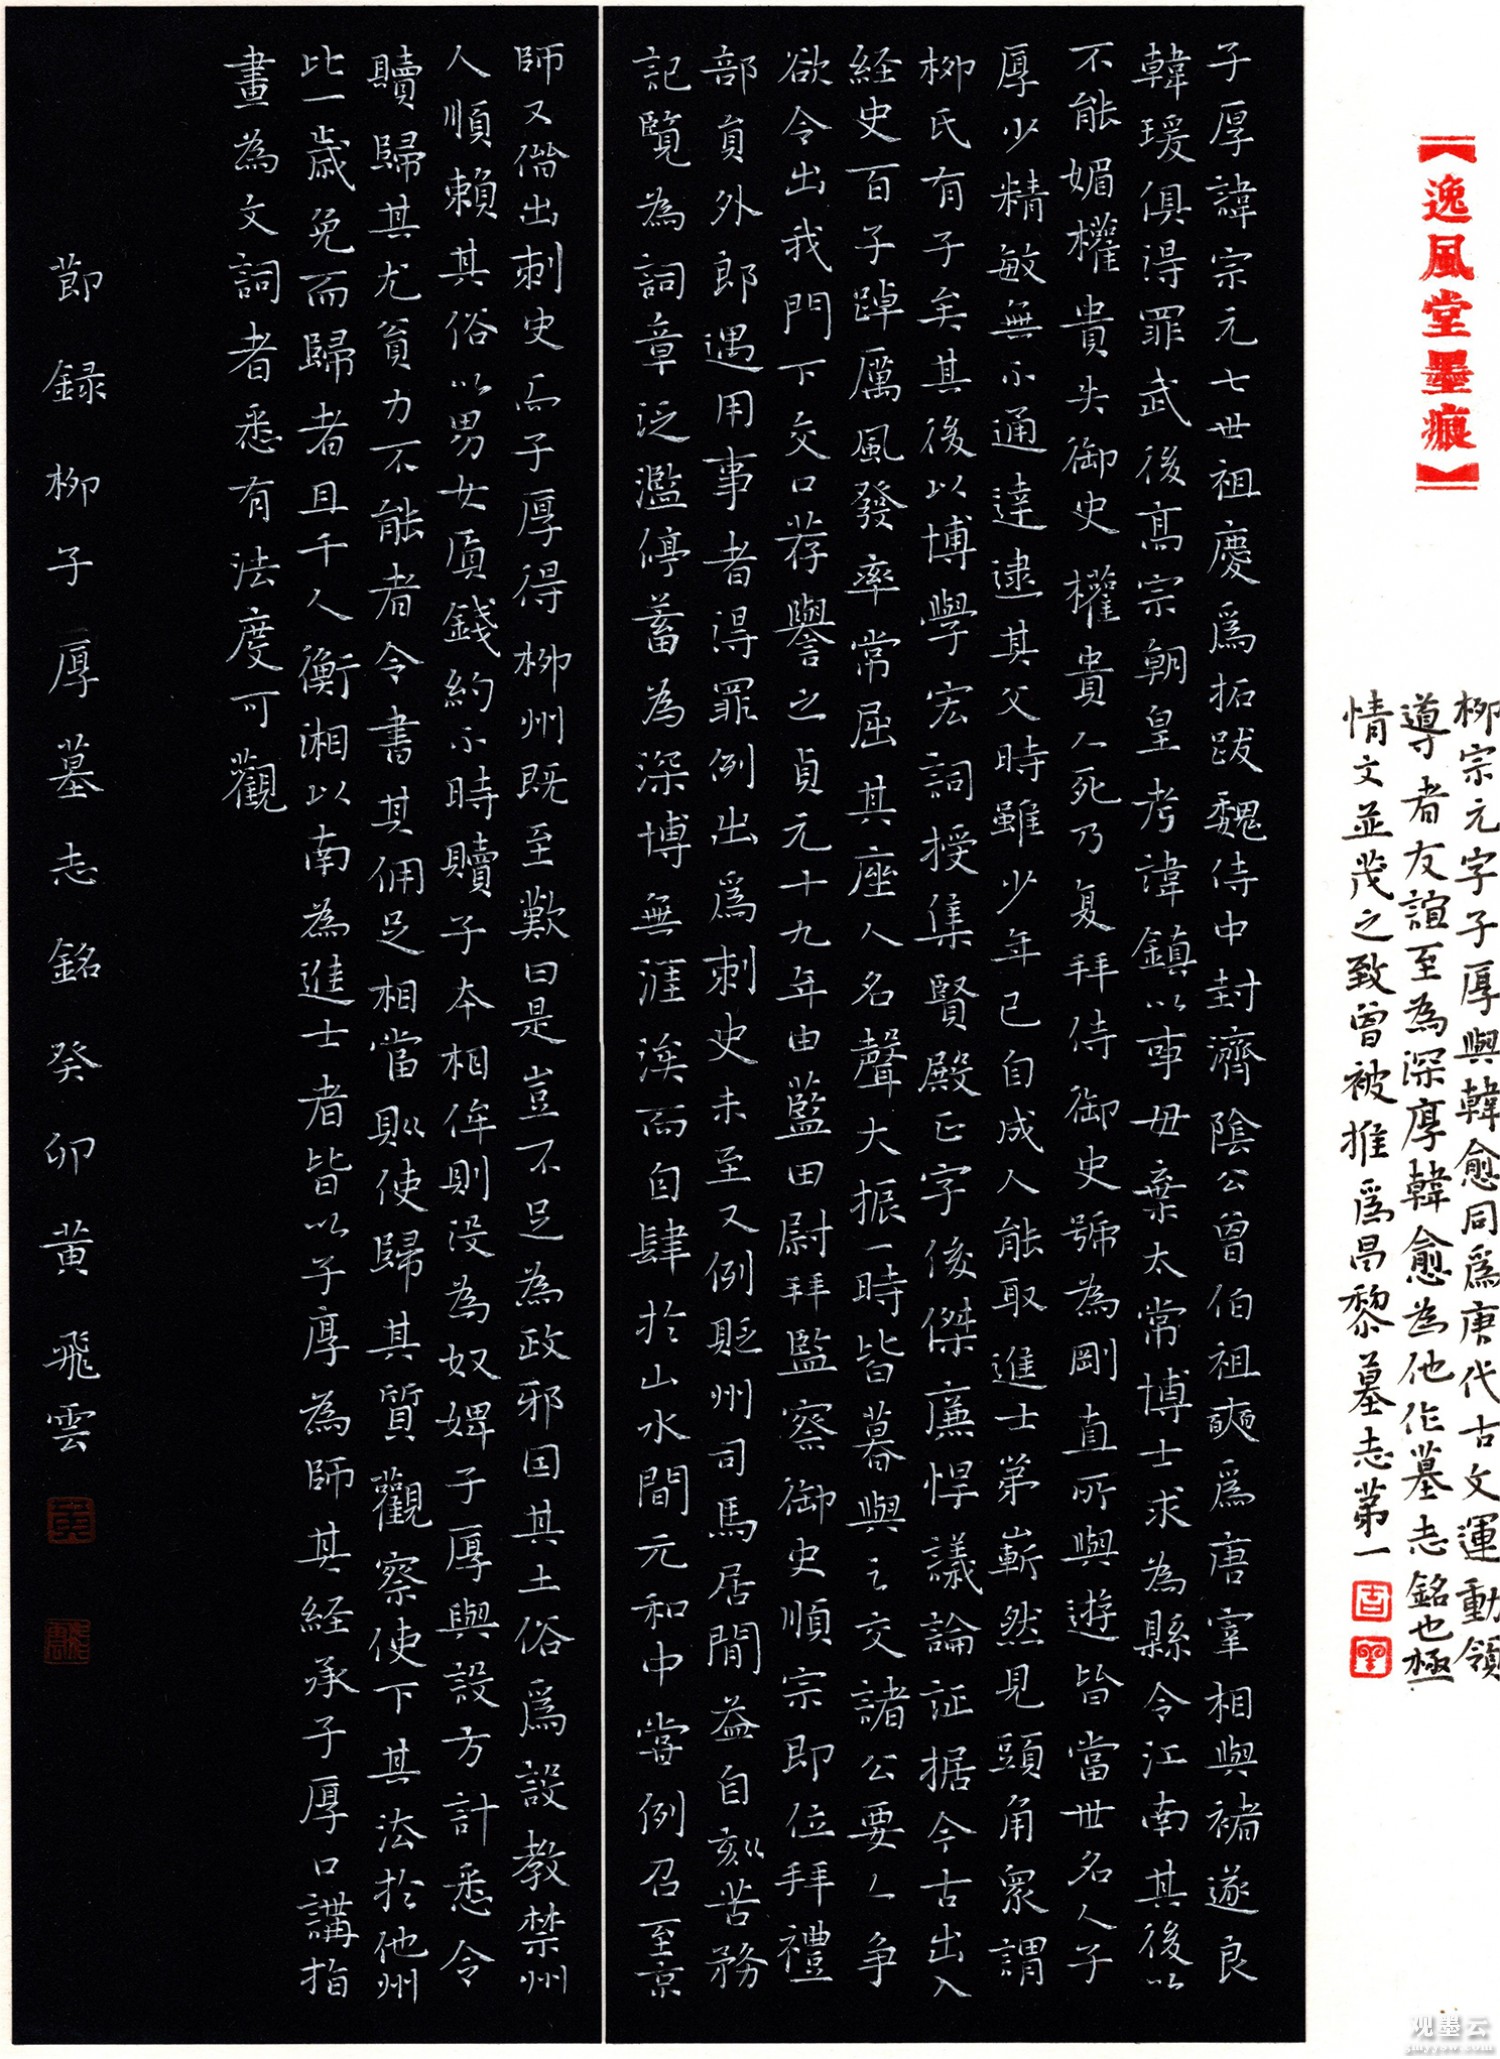 【逸風堂墨痕】
柳宗元字子厚與韓愈同爲唐代古文運動領
導者友誼至為深厚韓愈為他作墓志銘也極
情文並茂之致曾被推爲昌黎墓志第一
子厚諱宗元七世祖慶爲拓跋魏侍中封濟陰公曾伯祖奭爲唐宰相與褚遂良
韓瑗俱得罪武後高宗朝皇考諱鎮以事毋棄太常博士求為縣令江南其後以
不能媚權貴失御史權貴人死乃复拜侍御史號為剛直所與遊皆當世名人子
厚少精敏無不通達逮其父時雖少年已自成人能取進士第嶄然見頭角眾謂
柳氏有子矣其後以博學宏詞授集賢殿正字俊傑廉悍議論証据今古出入
経史百子踔厲風發率常屈其座人名聲大振一時皆慕與之交諸公要人争
欲令出我門下交口荐譽之貞元十九年由藍田尉拜監察御史順宗即位拜禮
部員外郎遇用事者得罪例出爲刺史未至又例貶州司馬居閒益自刻苦務
記覽為詞章泛濫停蓄為深博無涯涘而自肆於山水間元和中嘗例召至京
師又偕出刺史而子厚得柳州既至歎曰是豈不足為政邪因其土俗爲設教禁州
人順賴其俗以男女質錢約不時贖子本相侔則没為奴婢子厚與設方計悉令
贖歸其尤貧力不能者令書其佣足相當則使歸其質觀察使下其法於他州
比一歲免而歸者且千人衡湘以南為進士者皆以子厚為師其経承子厚口講指
畫為文詞者悉有法度可觀
節録柳子厚墓志銘癸卯黃飛雲
观墨云